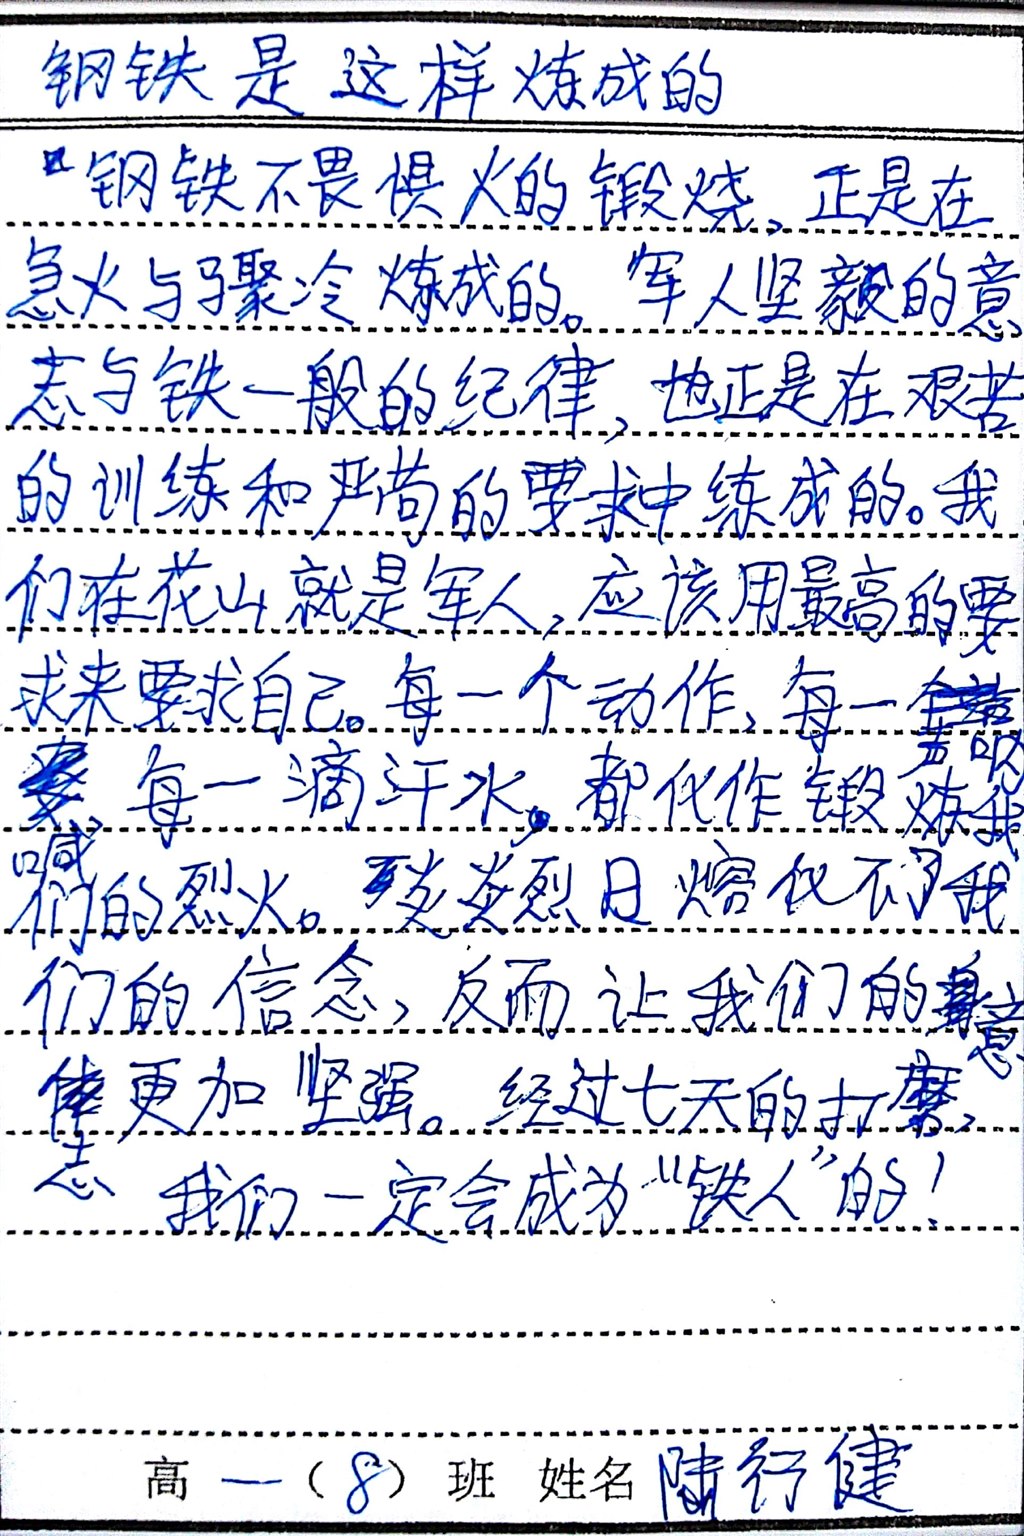 钢铁是这样炼成的
"钢铁不畏惧火的锻烧,正是在
急火与骤冷炼成的。"军人坚毅的意
志与铁一般的纪律,也正是在艰苦
的训练和严苛的要求中练成的。我
们在花山就是军人,应该用最高的要
求来要求自己。每一个动作,每一声呐
喊,每一滴汗水,都化作锻炼我
们的烈火。炎炎烈日熔化不了我
们的信念,反而让我们的意
志更加坚强。经过七天的打磨,
我们一定会成为"铁人"的!
高一(8)班 姓名 陆行健